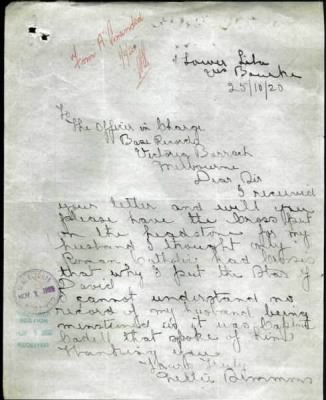 Lower Lila
via Bourke
25/10/20
To
The Officer in Charge
Base Records
Victoria Barrack
Melbourne
Dear Sir
I received
your letter and will you
please have the cross put
on the headstone for my
husband I thought only
Roman Catholic had crosses
that why I put the Star of
David
I cannot understand no
record of my husband being
it was Captain
that spoke of him
Thanking you
Yours Truly
Nellie